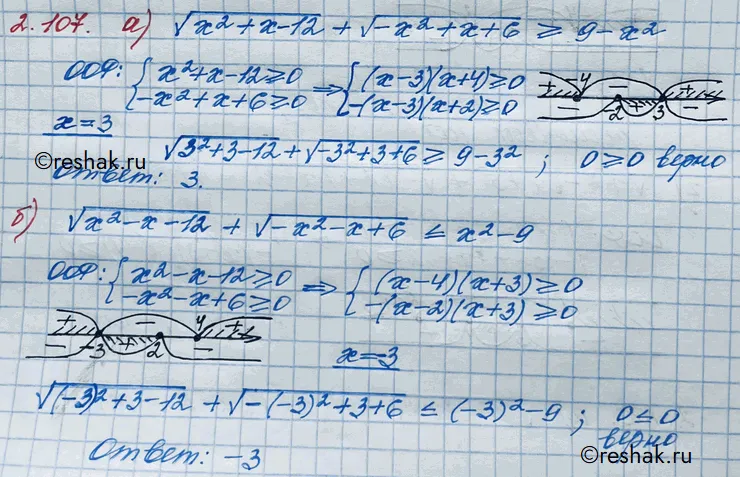 2.107. а) √(x²+x-12) + √(-x²+x+6) ≥ 9-x²
ООФ: { x²+x-12≥0 ⇒ { (x-3)(x+4)≥0
-x²+x+6≥0 -(x-3)(x+2)≥0
+ -4 - + - 2 + 3 -
x=3
√(3²+3-12) + √(-3²+3+6) ≥ 9-3² ; 0≥0 верно
©reshak.ru
Ответ: 3.
б) √(x²-x-12) + √(-x²-x+6) ≤ x²-9
ООФ: { x²-x-12≥0 ⇒ { (x-4)(x+3)≥0
-x²-x+6≥0 -(x-2)(x+3)≥0
+ - 4 + - -3 + 2 -
x=-3
√((-3)²+3-12) + √(-(-3)²+3+6) ≤ (-3)²-9 ; 0≤0
верно
Ответ: -3
©reshak.ru